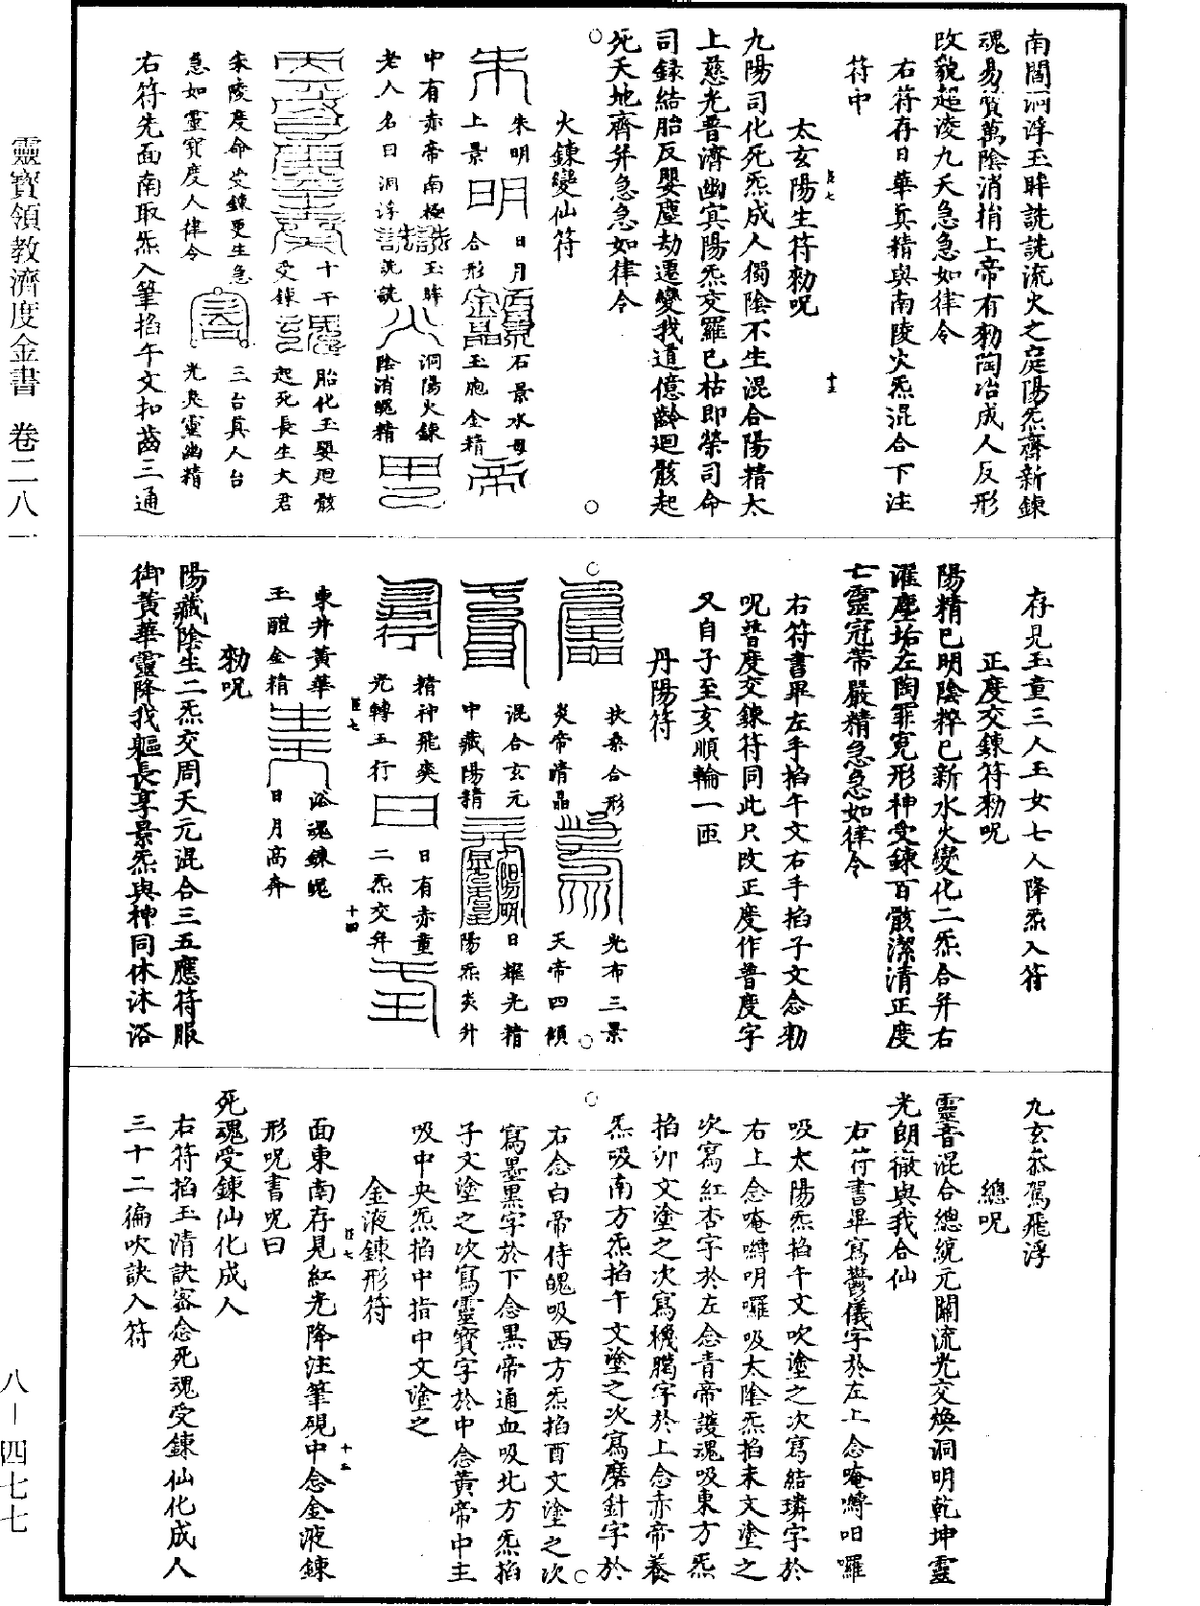 南閻洞浮玉眸詵詵流火之庭陽炁齋新鍊
魂易質萬陰消揹上帝有勑陶冶成人反形
改貌超淩九天急急如律令
右符存日華真精與南陵火炁混合下注
符中
太玄陽生符勑呪
九陽司化死炁成人獨陰不生混合陽精太
上慈光普濟幽冥陽炁交羅已枯即榮司命
司録結胎反嬰塵劫遷變我道億齡迴骸起
死天地齊并急急如律令
火鍊變仙符
朱明
上景
日月
合形
石景水母
玉胞金精
中有赤帝南極
老人名曰洞浮
玉眸
詵詵
洞陽火鍊
陰消魄精
十千
受鍊
胎化玉嬰迴骸
起死長生大君
朱陵度命受鍊更生急
急如靈寶度人律令
三台真人台
光奐靈幽精
右符先面南取炁入筆掐午文扣齒三通
存見玉童三人玉女七人降炁入符
正度交鍊符勑呪
陽精已明陰粹已新水火變化二炁合并右
濯塵垢左陶罪寃形神受鍊百骸潔清正度
亡靈冠帶嚴精急急如律令
右符書畢左手掐午文右手掐子文念勑
呪普度交鍊符同此只改正度作普度字
又自子至亥順輪一匝
丹陽符
扶桑合形
炎帝晴晶
光布三景
天帝四傾
混合玄元
中藏陽精
日耀光精
陽炁炎升
精神飛爽
光轉五行
日有赤童
二炁交并
東井黃華
玉醴金精
浴魂鍊魄
日月高奔
勑呪
陽藏陰生二炁交周天元混合三五應符服
御黃華靈降我軀長享景炁與神同休沐浴
九玄蒸駕飛浮
總呪
靈音混合總統元關流光交煥洞明乾坤靈
光朗徹與我合仙
右符書畢寫鬱儀字於左上念唵㘄呬囉
吸太陽炁掐午文吹塗之次寫結璘字於
右上念唵㘄明囉吸太陰炁掐未文塗之
次寫紅杏字於左念青帝護魂吸東方炁
掐卯文塗之次寫機腸字於上念赤帝養
炁吸南方炁掐午文塗之次寫磨針字於
右念白帝侍魄吸西方炁掐酉文塗之次
寫墨黑字於下念黑帝通血吸北方炁掐
子文塗之次寫靈寶字於中念黃帝中主
吸中央炁掐中指中文塗之
金液鍊形符
面東南存見紅光降注筆硯中念金液鍊
形呪書呪曰
死魂受鍊仙化成人
右符掐玉清訣密念死魂受鍊仙化成人
三十二徧吹訣入符
靈寶領教濟度金書 卷二八一
八—四七七